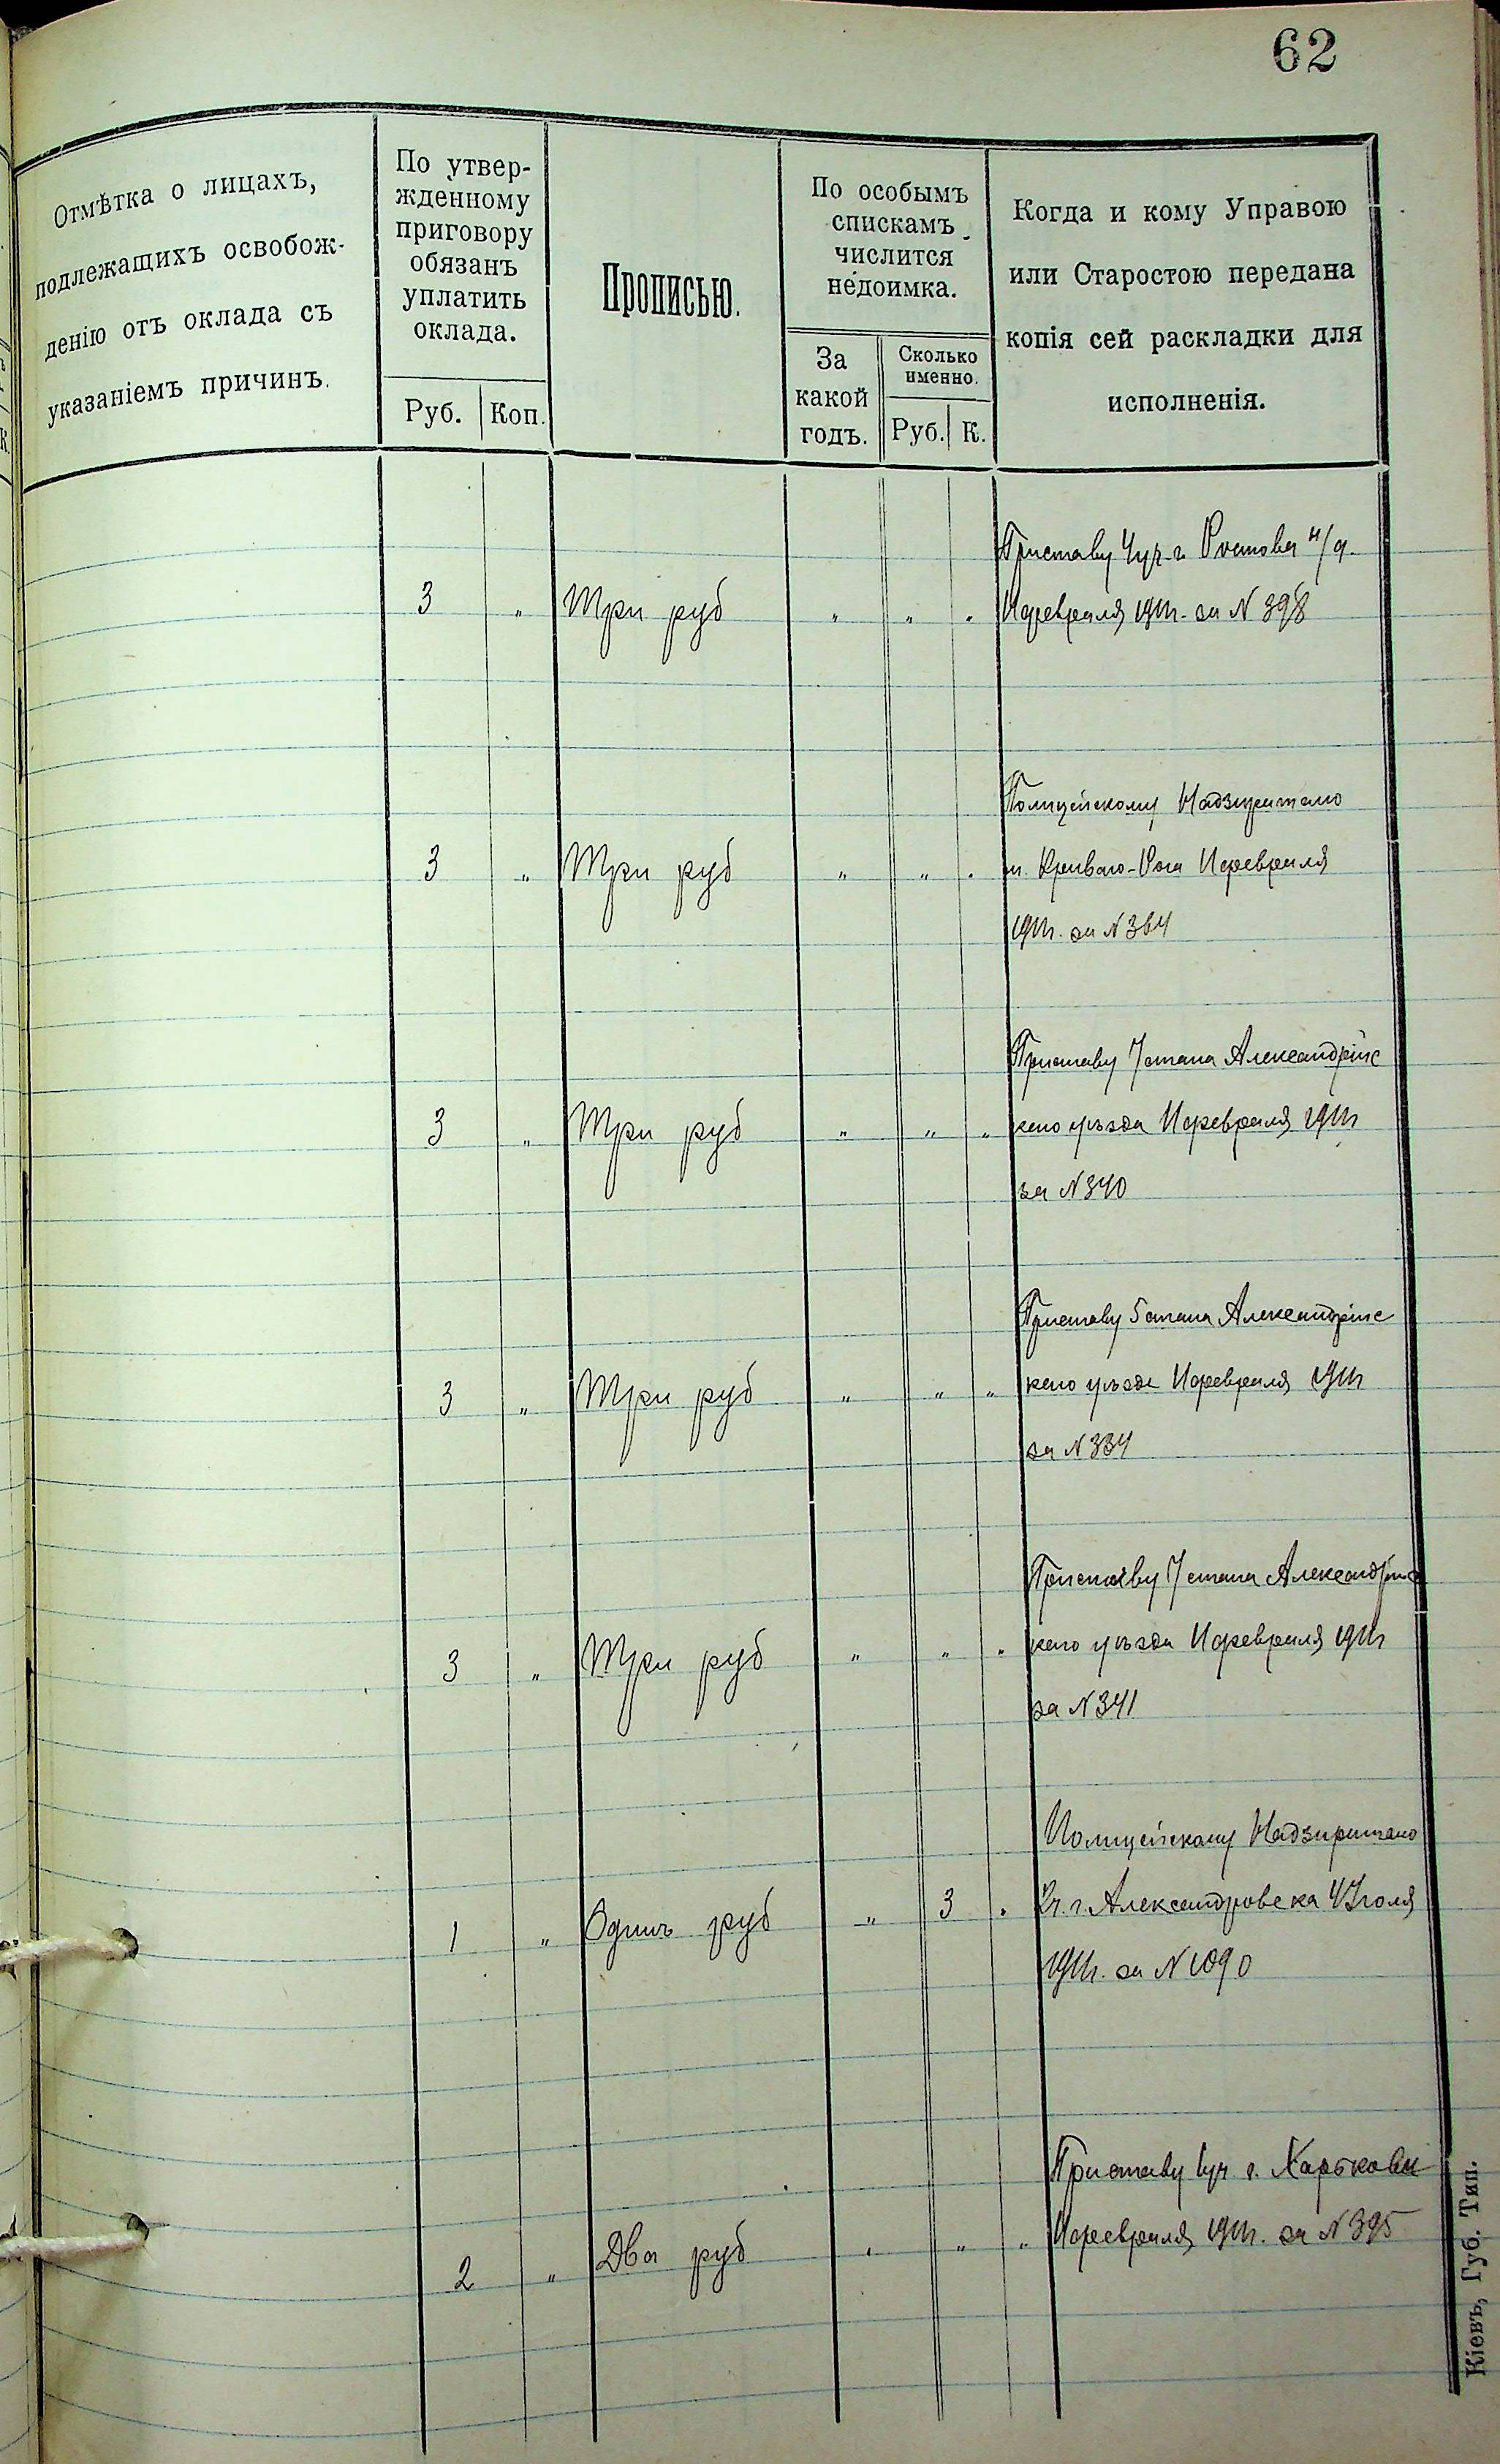 62
Отмѣтка о лицахъ,
подлежащихъ освобож-
денію отъ оклада съ
указаніемъ причинъ.
По утвер-
жденному
приговору
обязанъ
уплатить
оклада.
Руб. Коп.
Прописью.
По особымъ
спискамъ
числится
недоимка.
За
какой
годъ.
Сколько
именно.
Руб. К.
Когда и кому Управою
или Старостою передана
копія сей раскладки для
исполненія.
Приставу 4 уч. г. Ростова н/д.
3 „ Три руб „ „ „ февраля 1911 г. за N 398
Полицейскому Надзирателю
3 „ Три руб „ „ „ м. Криваго-Рога февраля
1911 г. за N 364
Приставу стана Александрійс
3 „ Три руб „ „ „ каго уѣзда февраля 1911 г
за N 340
Приставу 5 стана Александрійс
3 „ Три руб „ „ „ каго уѣзда февраля 1911 г
за N 334
Приставу стана Александрійс
3 „ Три руб „ „ „ каго уѣзда февраля 1911 г
за N 341
Полицейскому Надзирателю
1 „ Одинъ руб „ 3 „ г. Александровска Іюля
1911 г. за N 1090
Приставу уч г. Харькова
2 „ Два руб „ „ „ февраля 1911 г. за N 395
Кіевъ, Губ. Тип.